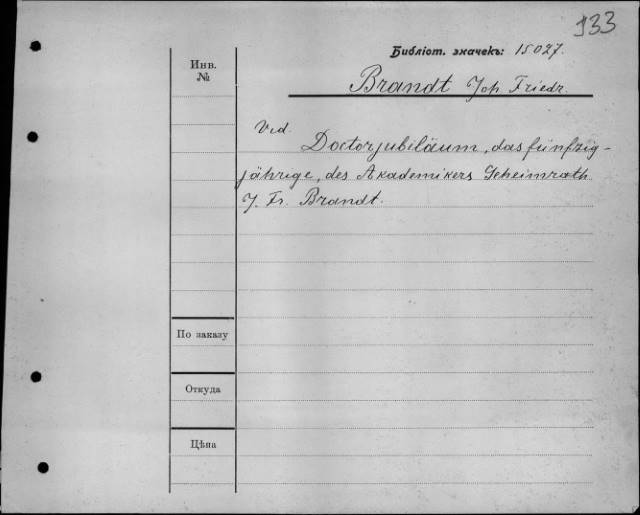 933
Библіот. значекъ: 15027.
Инв.
№
Brandt Joh Friedr.
Vid.
Doctorjubiläum, das fünfzig-
jährige, des Akademikers Geheimrath
J. Fr. Brandt.
По заказу
Откуда
Цѣна